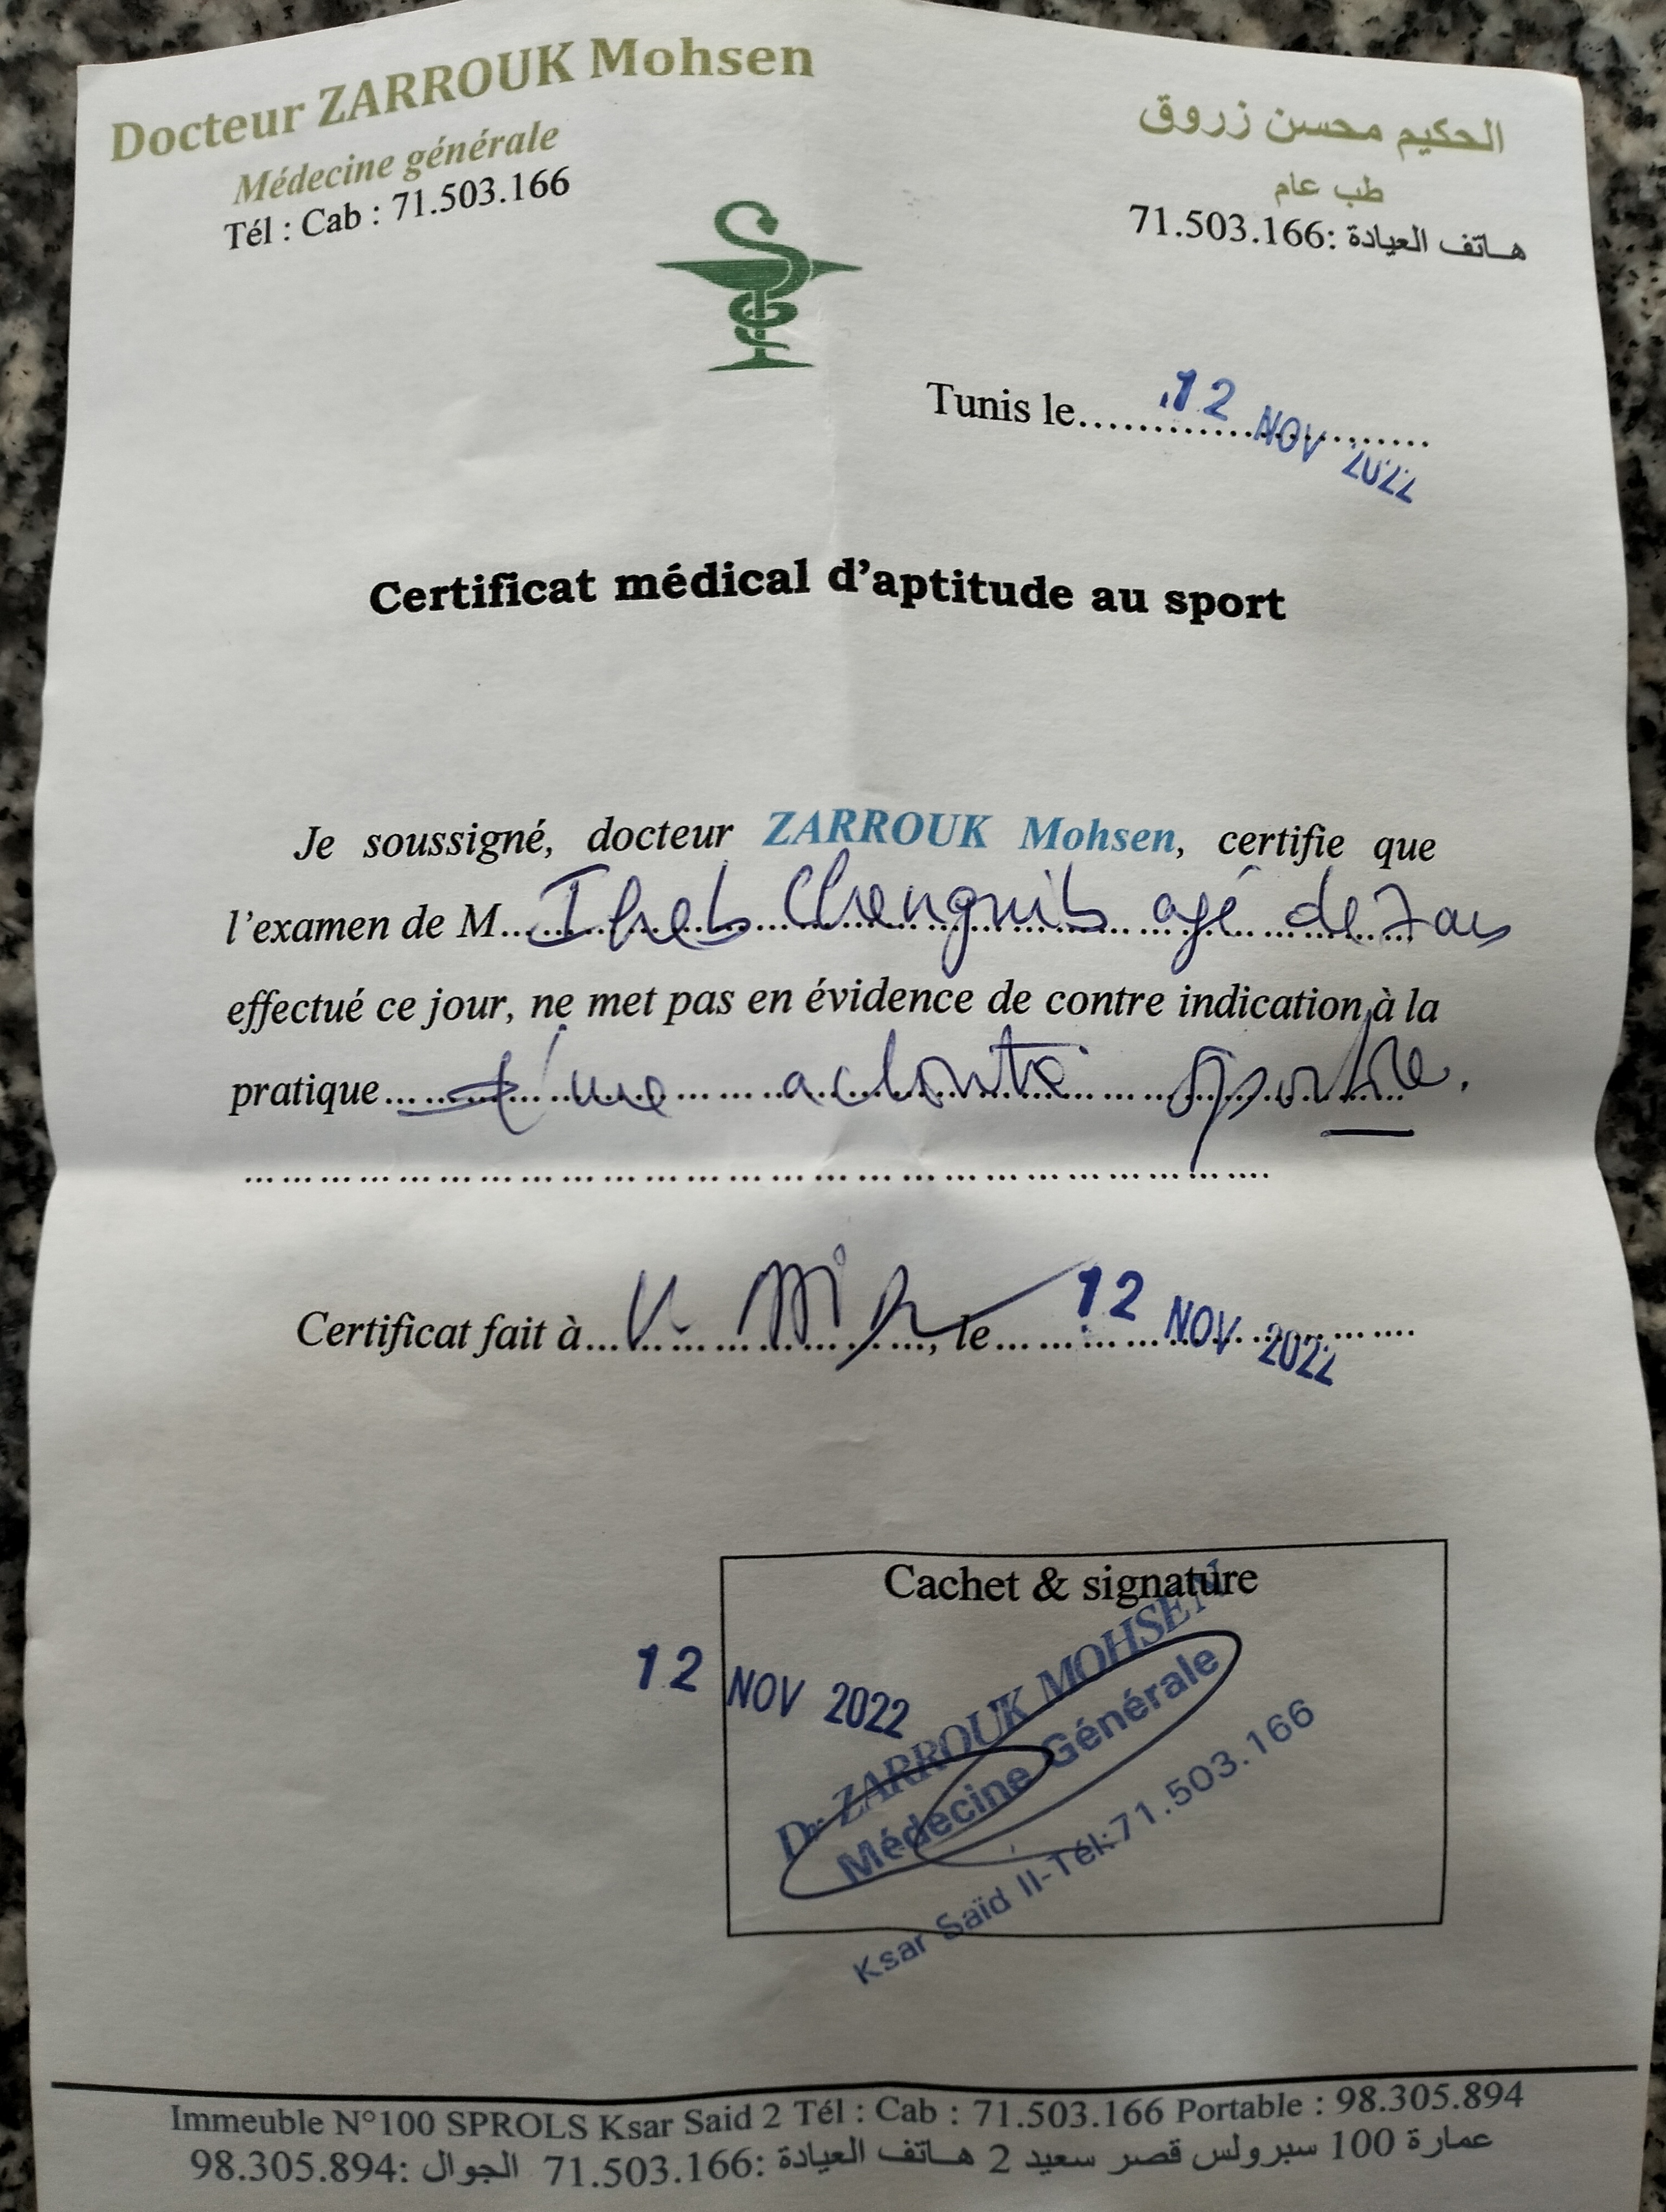 Docteur ZARROUK Mohsen
Médecine générale
Tél : Cab : 71.503.166
الحكيم محسن زروق
طب عام
هاتف العيادة :71.503.166
Tunis le.......12 NOV 2022
Certificat médical d'aptitude au sport
Je soussigné, docteur ZARROUK Mohsen, certifie que
l'examen de M... Iheb Chenguib agé de 7 ans
effectué ce jour, ne met pas en évidence de contre indication à la
pratique... d'une activité sportive.
Certificat fait à... , le... 12 NOV 2022
Cachet & signature
12 NOV 2022
Dr ZARROUK MOHSEN
Médecine Générale
Ksar Saïd II-Tél:71.503.166
Immeuble N°100 SPROLS Ksar Said 2 Tél : Cab : 71.503.166 Portable : 98.305.894
عمارة 100 سبرولس قصر سعيد 2 هاتف العيادة :71.503.166 الجوال :98.305.894